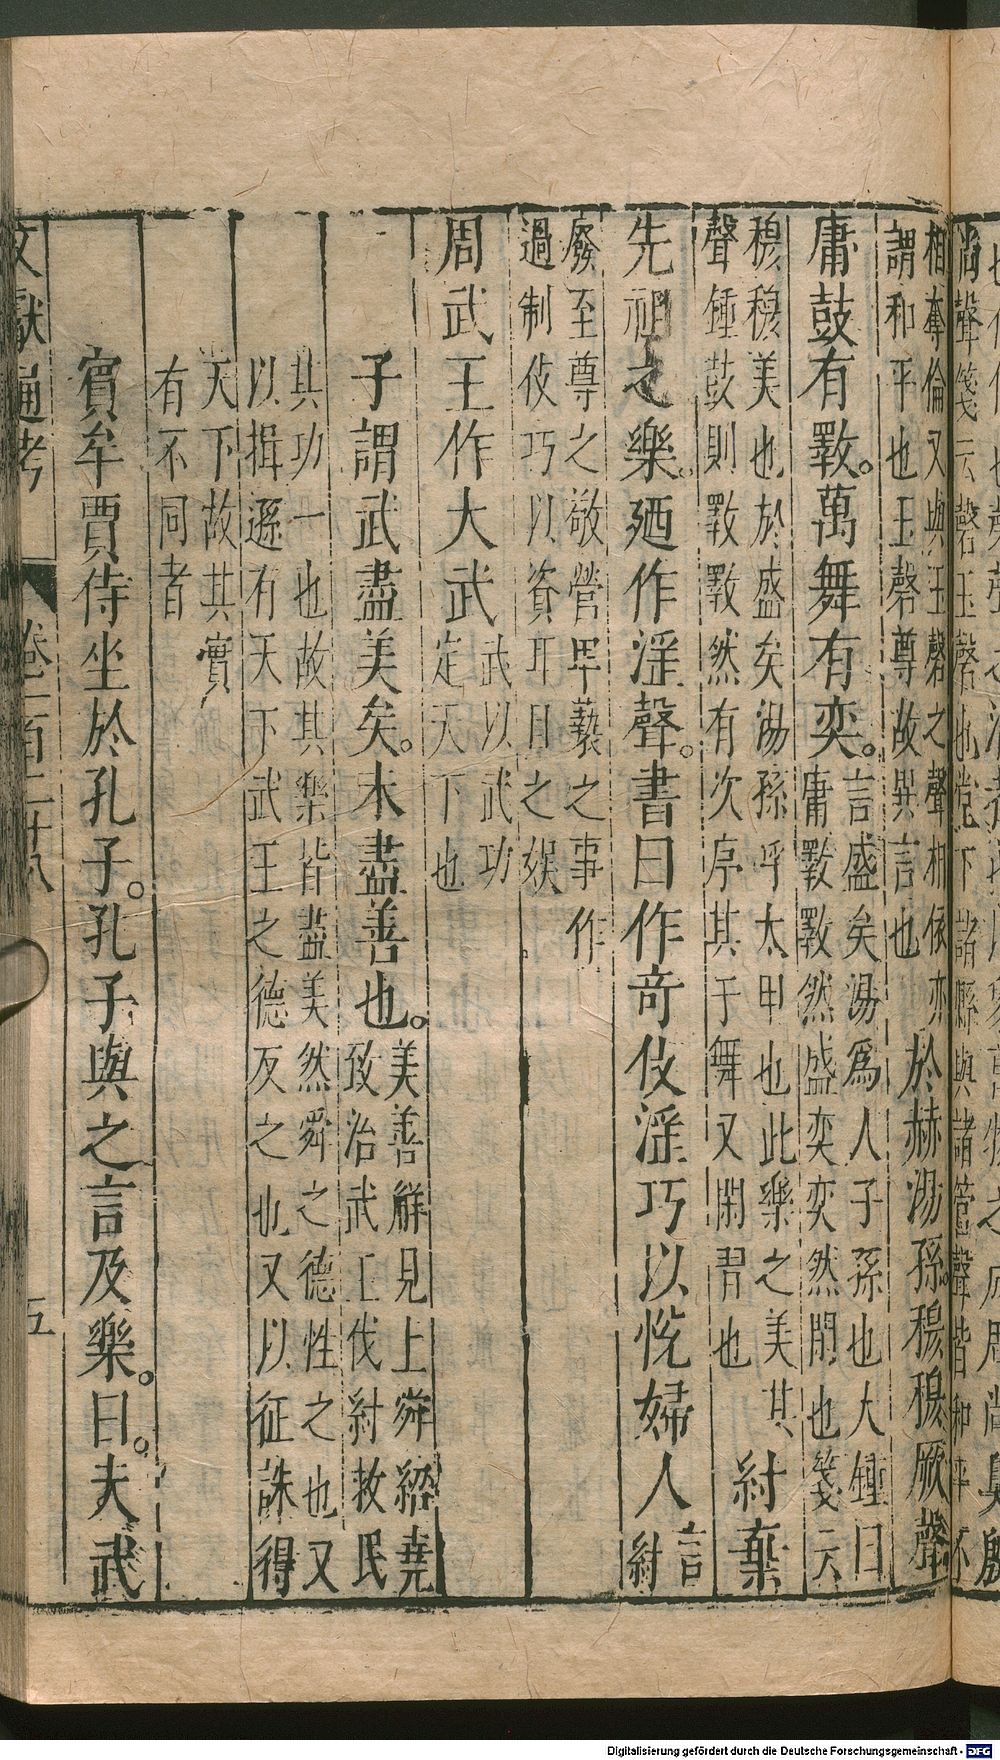 尚聲箋云磬玉磬也堂下諸縣與諸管聲皆和平不
相奪倫又與玉磬之聲相依亦
謂和平也玉磬尊故異言也
於赫湯孫穆穆厥聲
庸鼓有斁。萬舞有奕。
言盛矣湯爲人子孫也大鍾曰
庸斁斁然盛奕奕然閑也箋云
穆穆美也於盛矣湯孫呼太甲也此樂之美其
聲鍾鼓則斁斁然有次序其于舞又閑習也
紂棄
先祖之樂。廼作淫聲。書曰作奇伎淫巧以悅婦人
言
紂
廢至尊之敬營卑褻之事作
過制伎巧以資耳目之娛
周武王作大武
武以武功
定天下也
子謂武盡美矣。未盡善也。
美善解見上舜紹堯
致治武王伐紂救民
其功一也故其樂皆盡美然舜之德性之也又
以揖遜有天下武王之德反之也又以征誅得
天下故其實
有不同者
賓牟賈侍坐於孔子。孔子與之言及樂。曰。夫武
文獻通考 卷一百二十八 五
Digitalisierung gefördert durch die Deutsche Forschungsgemeinschaft - DFG